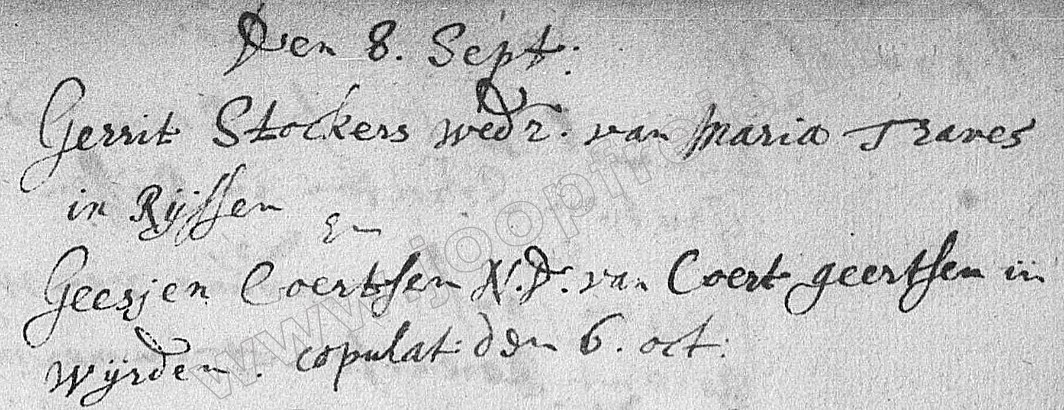 Den 8. Sept.
Gerrit Stockers wedr. van Maria Traves
in Rijssen
En
Geesjen Coertsen N.D. van Coert geertsen in
Wijrden. copulat: den 6. oct.